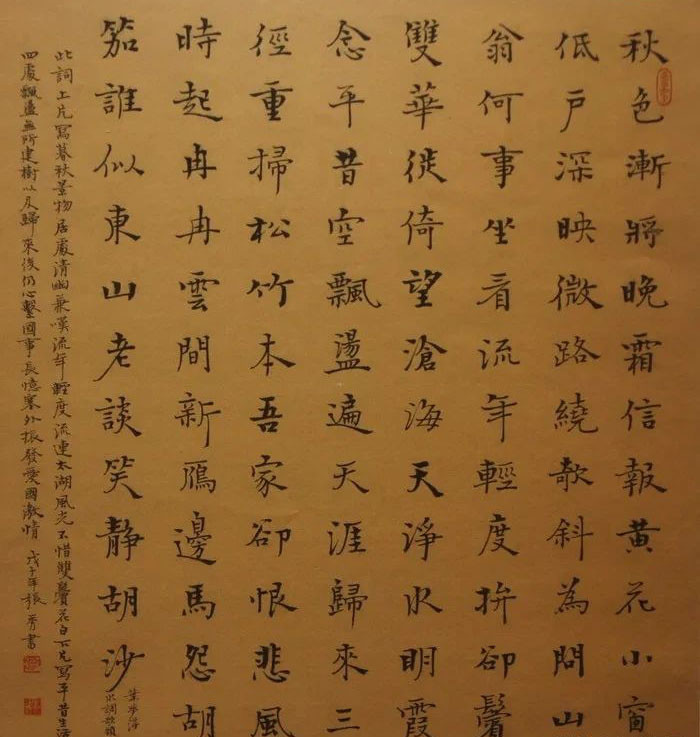 秋色漸將晚霜信報黃花小窗
低戶深映微路繞欹斜為問山
翁何事坐看流年輕度拚卻鬢
雙華徙倚望滄海天淨水明霞
念平昔空飄盪遍天涯歸來三
徑重掃松竹本吾家卻恨悲風
時起冉冉雲間新鴈邊馬怨胡
笳誰似東山老談笑靜胡沙
葉夢得
水調歌頭
此詞上片寫暮秋景物居處清幽兼嘆流年輕度流連太湖風光不惜雙鬢花白下片寫平昔生活
四處飄盪無所建樹以及歸來後仍心繫國事長憶塞外振發愛國激情 戊子年張芳書